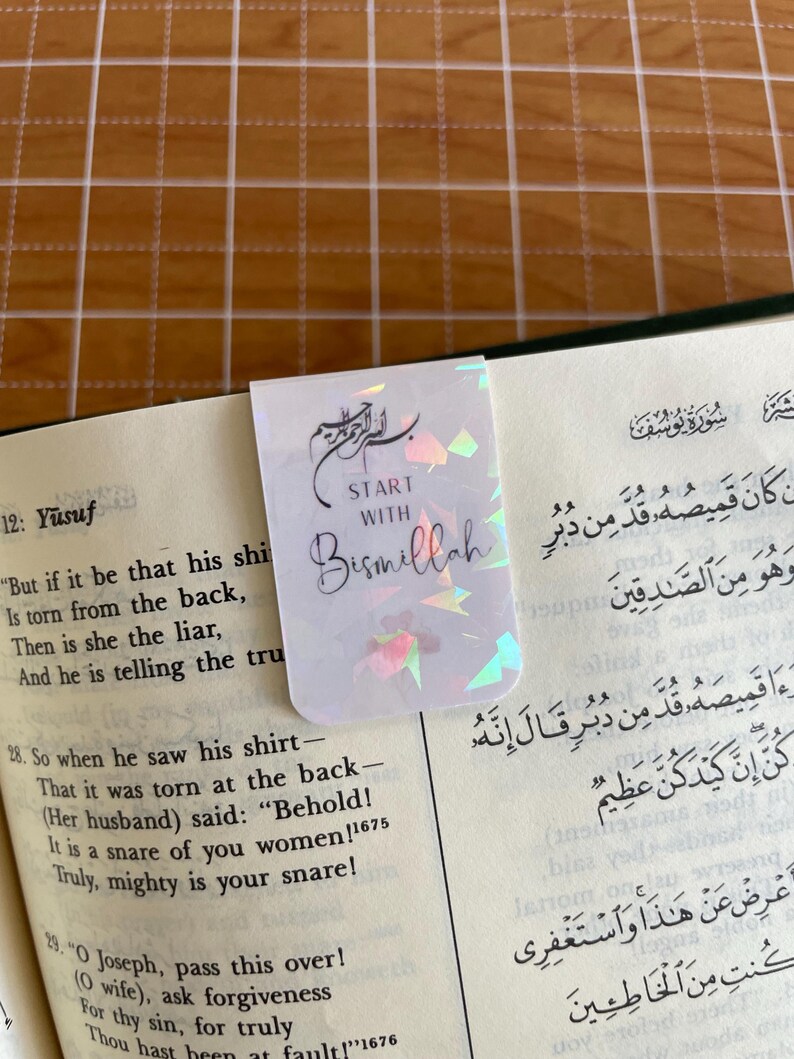 بسم الله الرحمن الرحيم
START
WITH
Bismillah
12: Yūsuf
"But if it be that his
Is torn from the back,
Then is she the liar,
And he is telling the
28. So when he saw his shirt—
That it was torn at the back—
(Her husband) said: "Behold!
It is a snare of you women!1675
Truly, mighty is your snare!
29. "O Joseph, pass this over!
(O wife), ask forgiveness
For thy sin, for truly
Thou hast been at fault!"1676
سُورَةُ يُوسُفَ
كَانَ قَمِيصُهُۥ قُدَّ مِن دُبُرٍ
وَهُوَ مِنَ ٱلصَّـٰدِقِينَ
قَمِيصَهُۥ قُدَّ مِن دُبُرٍ قَالَ إِنَّهُۥ
إِنَّ كَيْدَكُنَّ عَظِيمٌ
أَعْرِضْ عَنْ هَـٰذَا ۚ وَٱسْتَغْفِرِى
كُنتِ مِنَ ٱلْخَاطِـِٔينَ